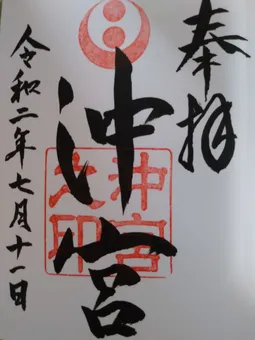 奉拝
沖宮
沖宮之印
令和二年七月十一日